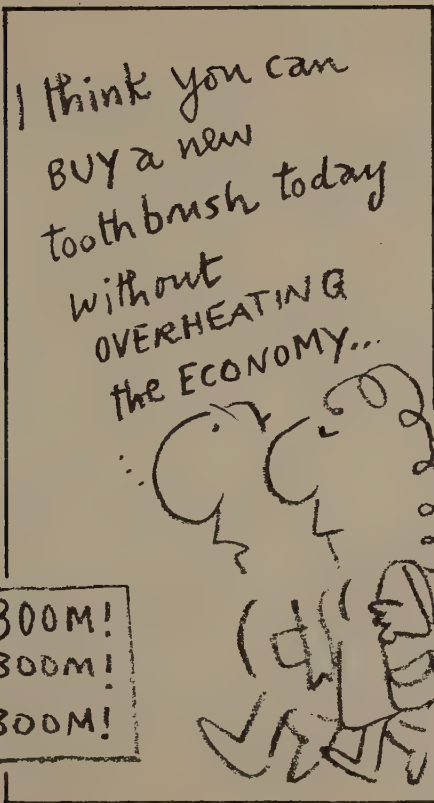 I think you can
BUY a new
toothbrush today
without
OVERHEATING
the ECONOMY...
BOOM!
BOOM!
BOOM!